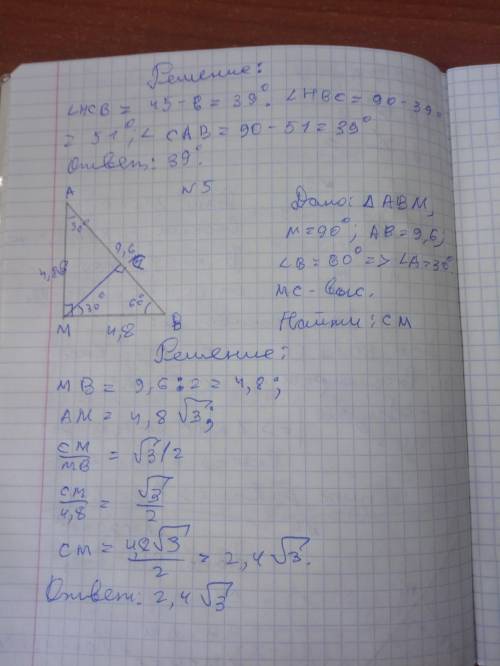 Решение:
∠HCB = 45-6 = 39°. ∠HBC = 90-39°
= 51°, ∠ CAB = 90-51 = 39°
Ответ: 39°.
N5
A
30°
9,6
C
4,8
M
30°
60°
B
4,8
Дано: △ABM,
M=90°; AB=9,6;
∠B=60° => ∠A=30°.
MC - выс.
Найти: CM
Решение:
MB = 9,6:2 = 4,8;
AM = 4,8√3;
CM/MB = √3/2
CM/4,8 = √3/2
CM = 4,8√3/2 = 2,4√3.
Ответ: 2,4√3